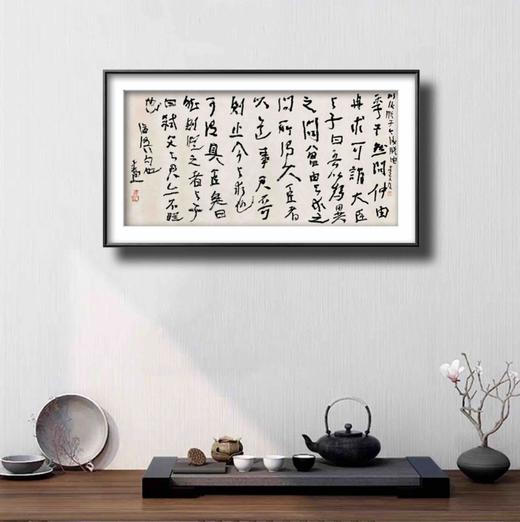 季子然問仲由
冉求可謂大臣
与子曰吾以為異
之問曾由与求之
問所謂大臣者
以道事君不可
則止今由与求也
可謂具臣矣曰
然則從之者与子
曰弑父与君亦不從
也